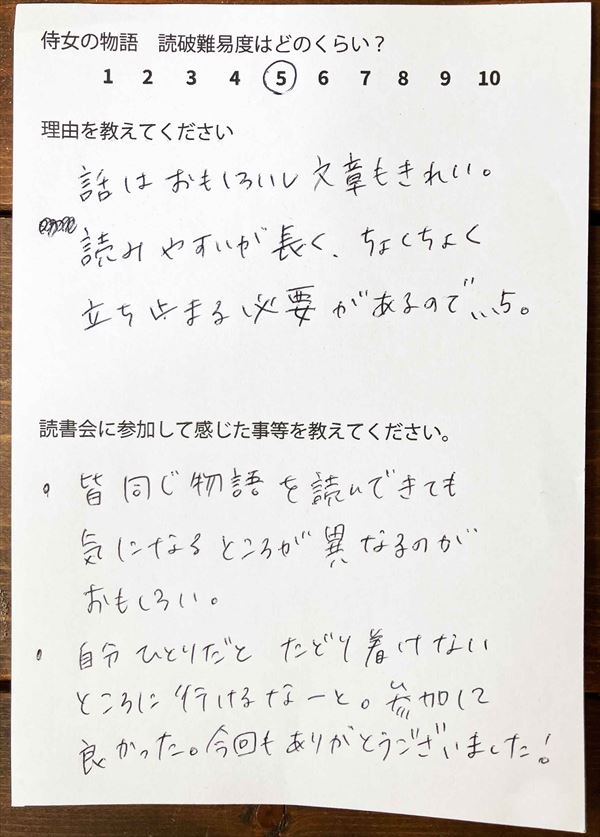 侍女の物語　読破難易度はどのくらい？
1 2 3 4 5 6 7 8 9 10
理由を教えてください
話はおもしろいし文章もきれい。
読みやすいが長く、ちょくちょく
立ち止まる必要があるので、5。
読書会に参加して感じた事等を教えてください。
。皆同じ物語を読んできても
気になるところが異なるのが
おもしろい。
。自分ひとりだと たどり着けない
ところに行けるなーと。参加して
良かった。今回もありがとうございました!